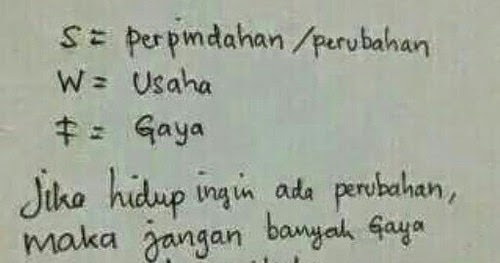 S = perpindahan / perubahan
W = Usaha
F = Gaya
Jika hidup ingin ada perubahan,
maka jangan banyak Gaya